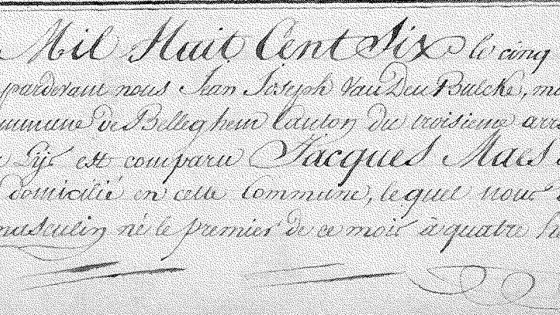 Mil Huit Cent Six le cinq
pardevant nous Jean Joseph Van Den Bulcke, ma
ommune de Belleghem Canton du troisieme arr
Lÿs est comparu Jacques Maes
domicilié en cette Commune, le quel nous
masculin né le premier de ce mois à quatre h